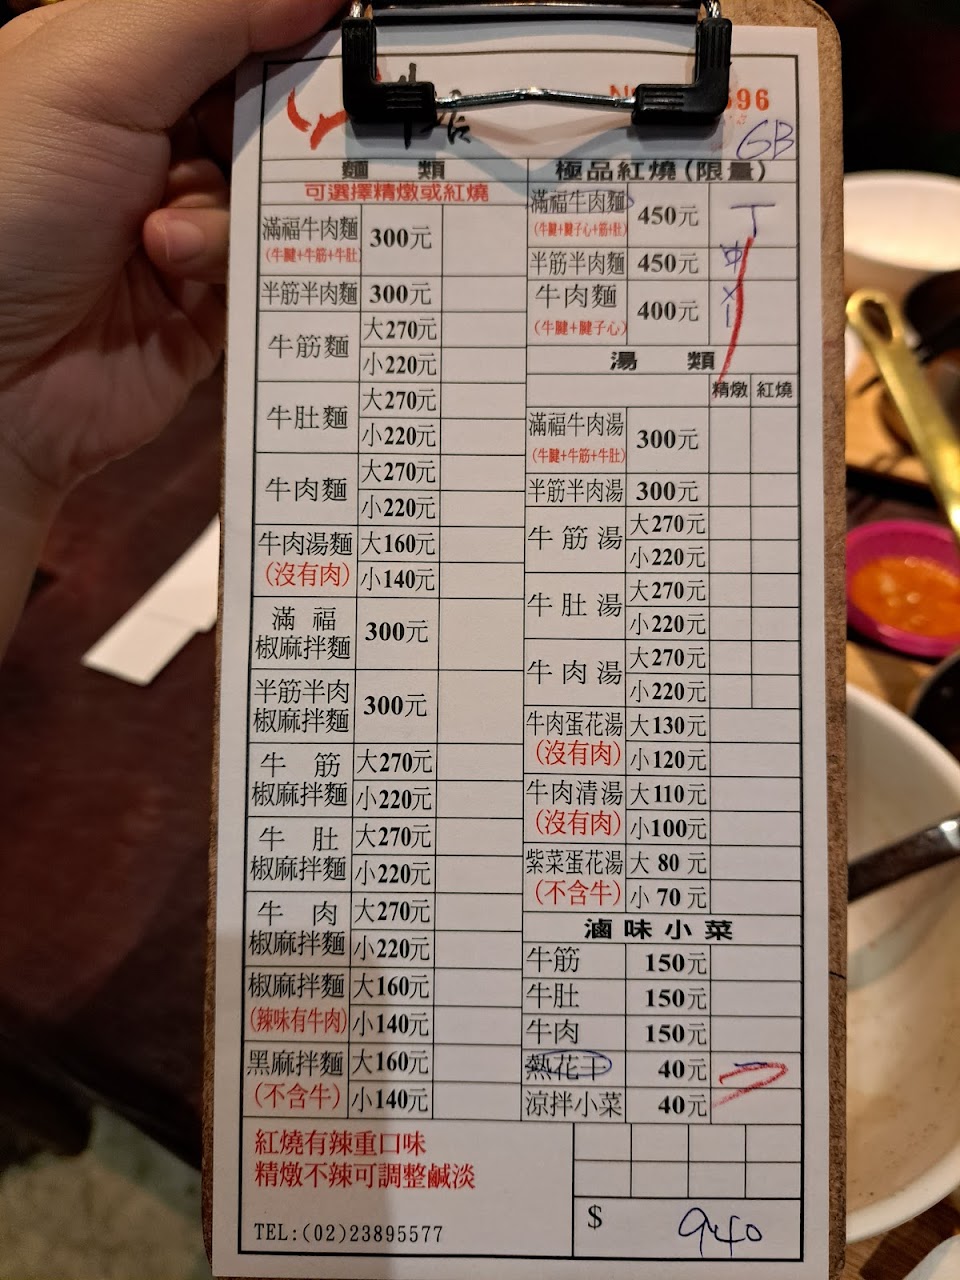 牛店
96
GB
麵 類
可選擇精燉或紅燒
滿福牛肉麵 300元
(牛腱+牛筋+牛肚)
半筋半肉麵 300元
牛筋麵 大270元
小220元
牛肚麵 大270元
小220元
牛肉麵 大270元
小220元
牛肉湯麵 大160元
(沒有肉) 小140元
滿福
椒麻拌麵 300元
半筋半肉
椒麻拌麵 300元
牛筋
椒麻拌麵 大270元
小220元
牛肚
椒麻拌麵 大270元
小220元
牛肉
椒麻拌麵 大270元
小220元
椒麻拌麵 大160元
(辣味有牛肉) 小140元
黑麻拌麵 大160元
(不含牛) 小140元
極品紅燒(限量)
滿福牛肉麵 450元
(牛腱+腱子心+筋+肚)
半筋半肉麵 450元
牛肉麵 400元
(牛腱+腱子心)
湯 類
精燉 紅燒
滿福牛肉湯 300元
(牛腱+牛筋+牛肚)
半筋半肉湯 300元
牛筋湯 大270元
小220元
牛肚湯 大270元
小220元
牛肉湯 大270元
小220元
牛肉蛋花湯 大130元
(沒有肉) 小120元
牛肉清湯 大110元
(沒有肉) 小100元
紫菜蛋花湯 大 80 元
(不含牛) 小 70 元
滷味小菜
牛筋 150元
牛肚 150元
牛肉 150元
熱花干 40元
涼拌小菜 40元
紅燒有辣重口味
精燉不辣可調整鹹淡
TEL:(02)23895577
$ 940